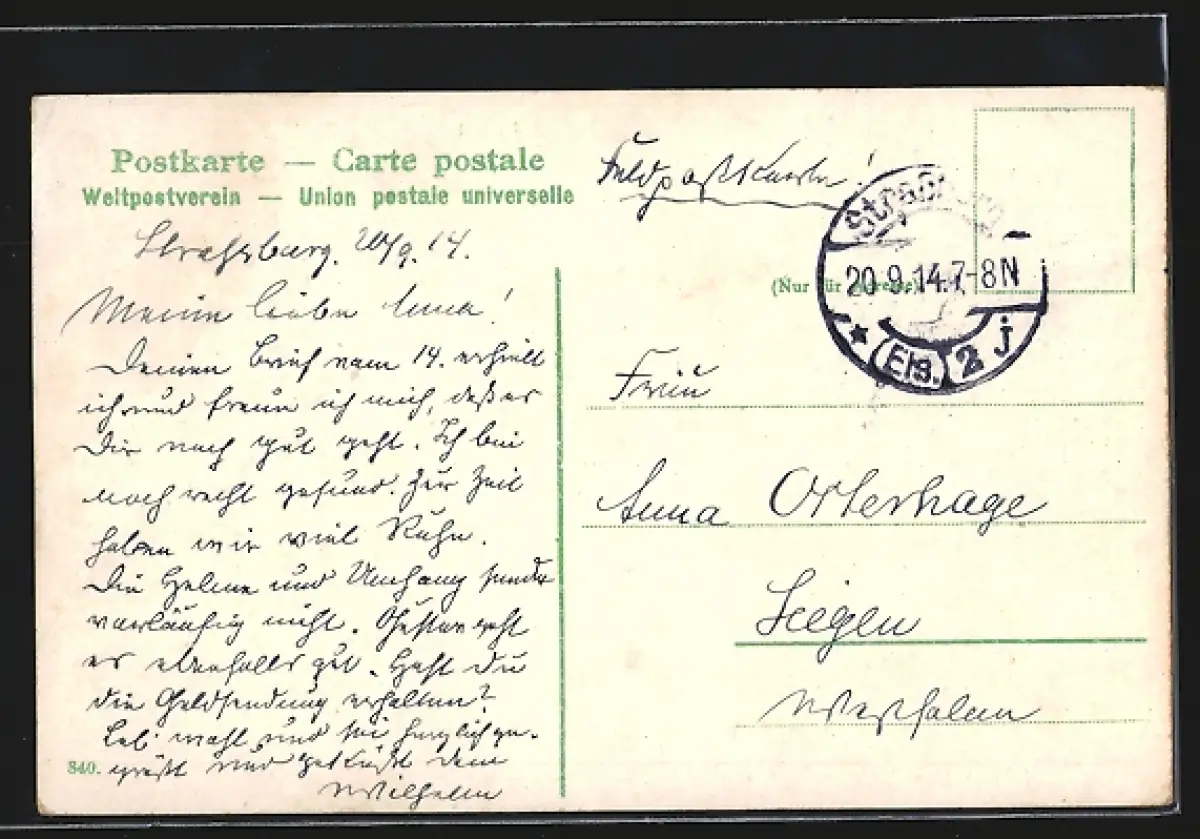 Postkarte — Carte postale
Weltpostverein — Union postale universelle
Straßburg, 20/9. 14.
Meine liebe Anna!
Deinen Brief vom 14. erhielt
ich und freue ich mich, daß es
Dir noch gut geht. Ich bin
noch recht gesund. Zur Zeit
haben wir viel Ruhe.
Die Helme und Umhang sende
vorläufig nicht. geht
es ebenfalls gut. Hast du
die Geldsendung erhalten?
Leb wohl und sei herzlich ge-
grüßt und geküßt dein
Wilhelm
840.
Feldpostkarte!
(Nur für Adresse)
Straßburg
20.9.14.7-8N
* (Els.) 2 j
Frau
Anna Osterhage
Siegen
Westfalen